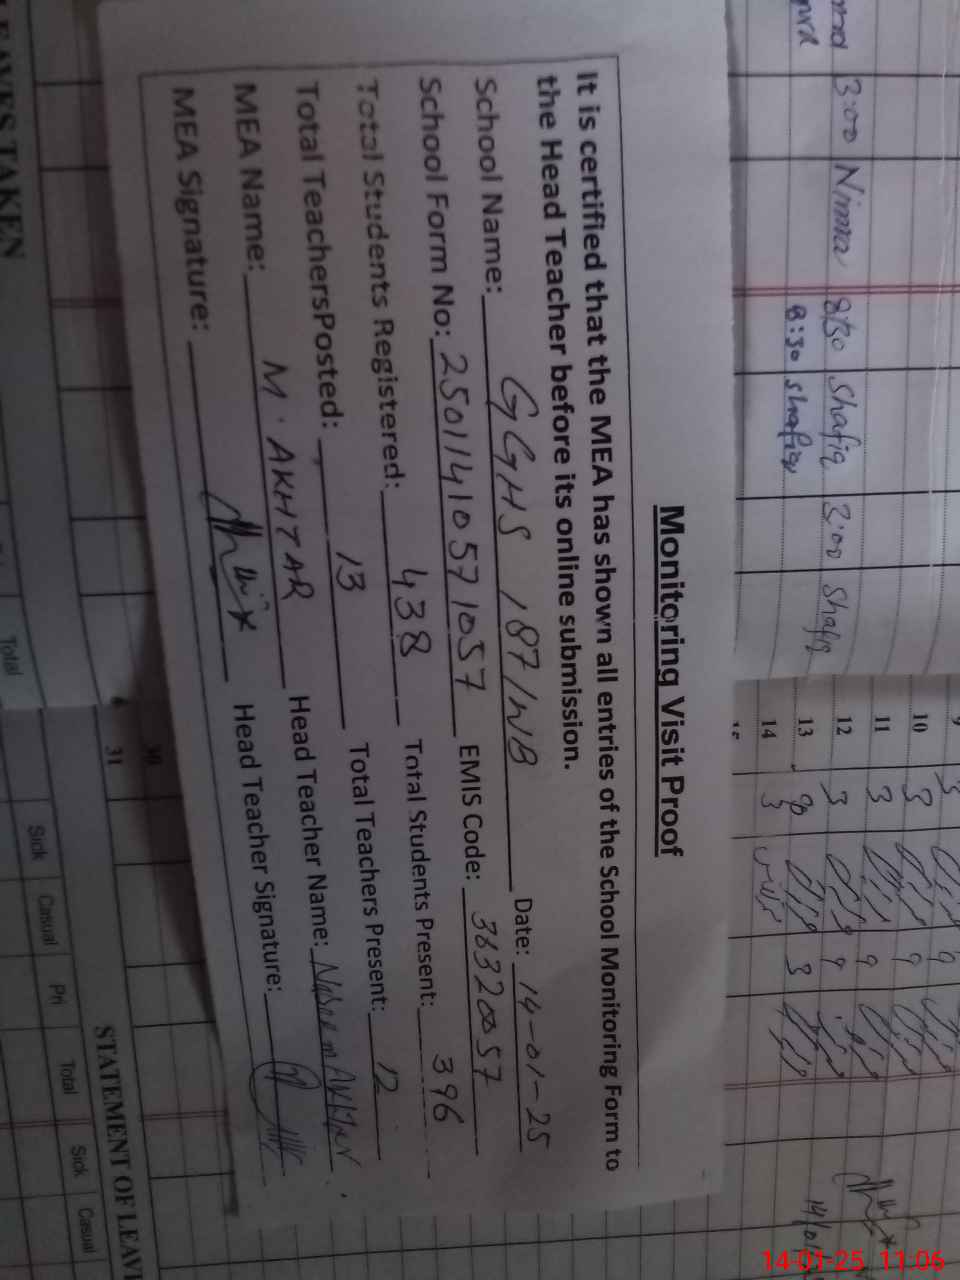 Monitoring Visit Proof
It is certified that the MEA has shown all entries of the School Monitoring Form to
the Head Teacher before its online submission.
School Name: GGHS 187/WB Date: 14-01-25
School Form No: 2501141057 1057 EMIS Code: 36320057
Total Students Registered: 438 Total Students Present: 396
Total TeachersPosted: 13 Total Teachers Present: 12
MEA Name: M. AKHTAR Head Teacher Name: AKHTAR
MEA Signature: Head Teacher Signature:
3:00 Nimra 8:30 Shafiq 3:00 Shafiq
8:30 Shafiq
10
11
12
13
14
30
31
LEAVES TAKEN
Total
STATEMENT OF LEAV
Sick Casual Pri Total Sick Casual
14-01-25 11:06